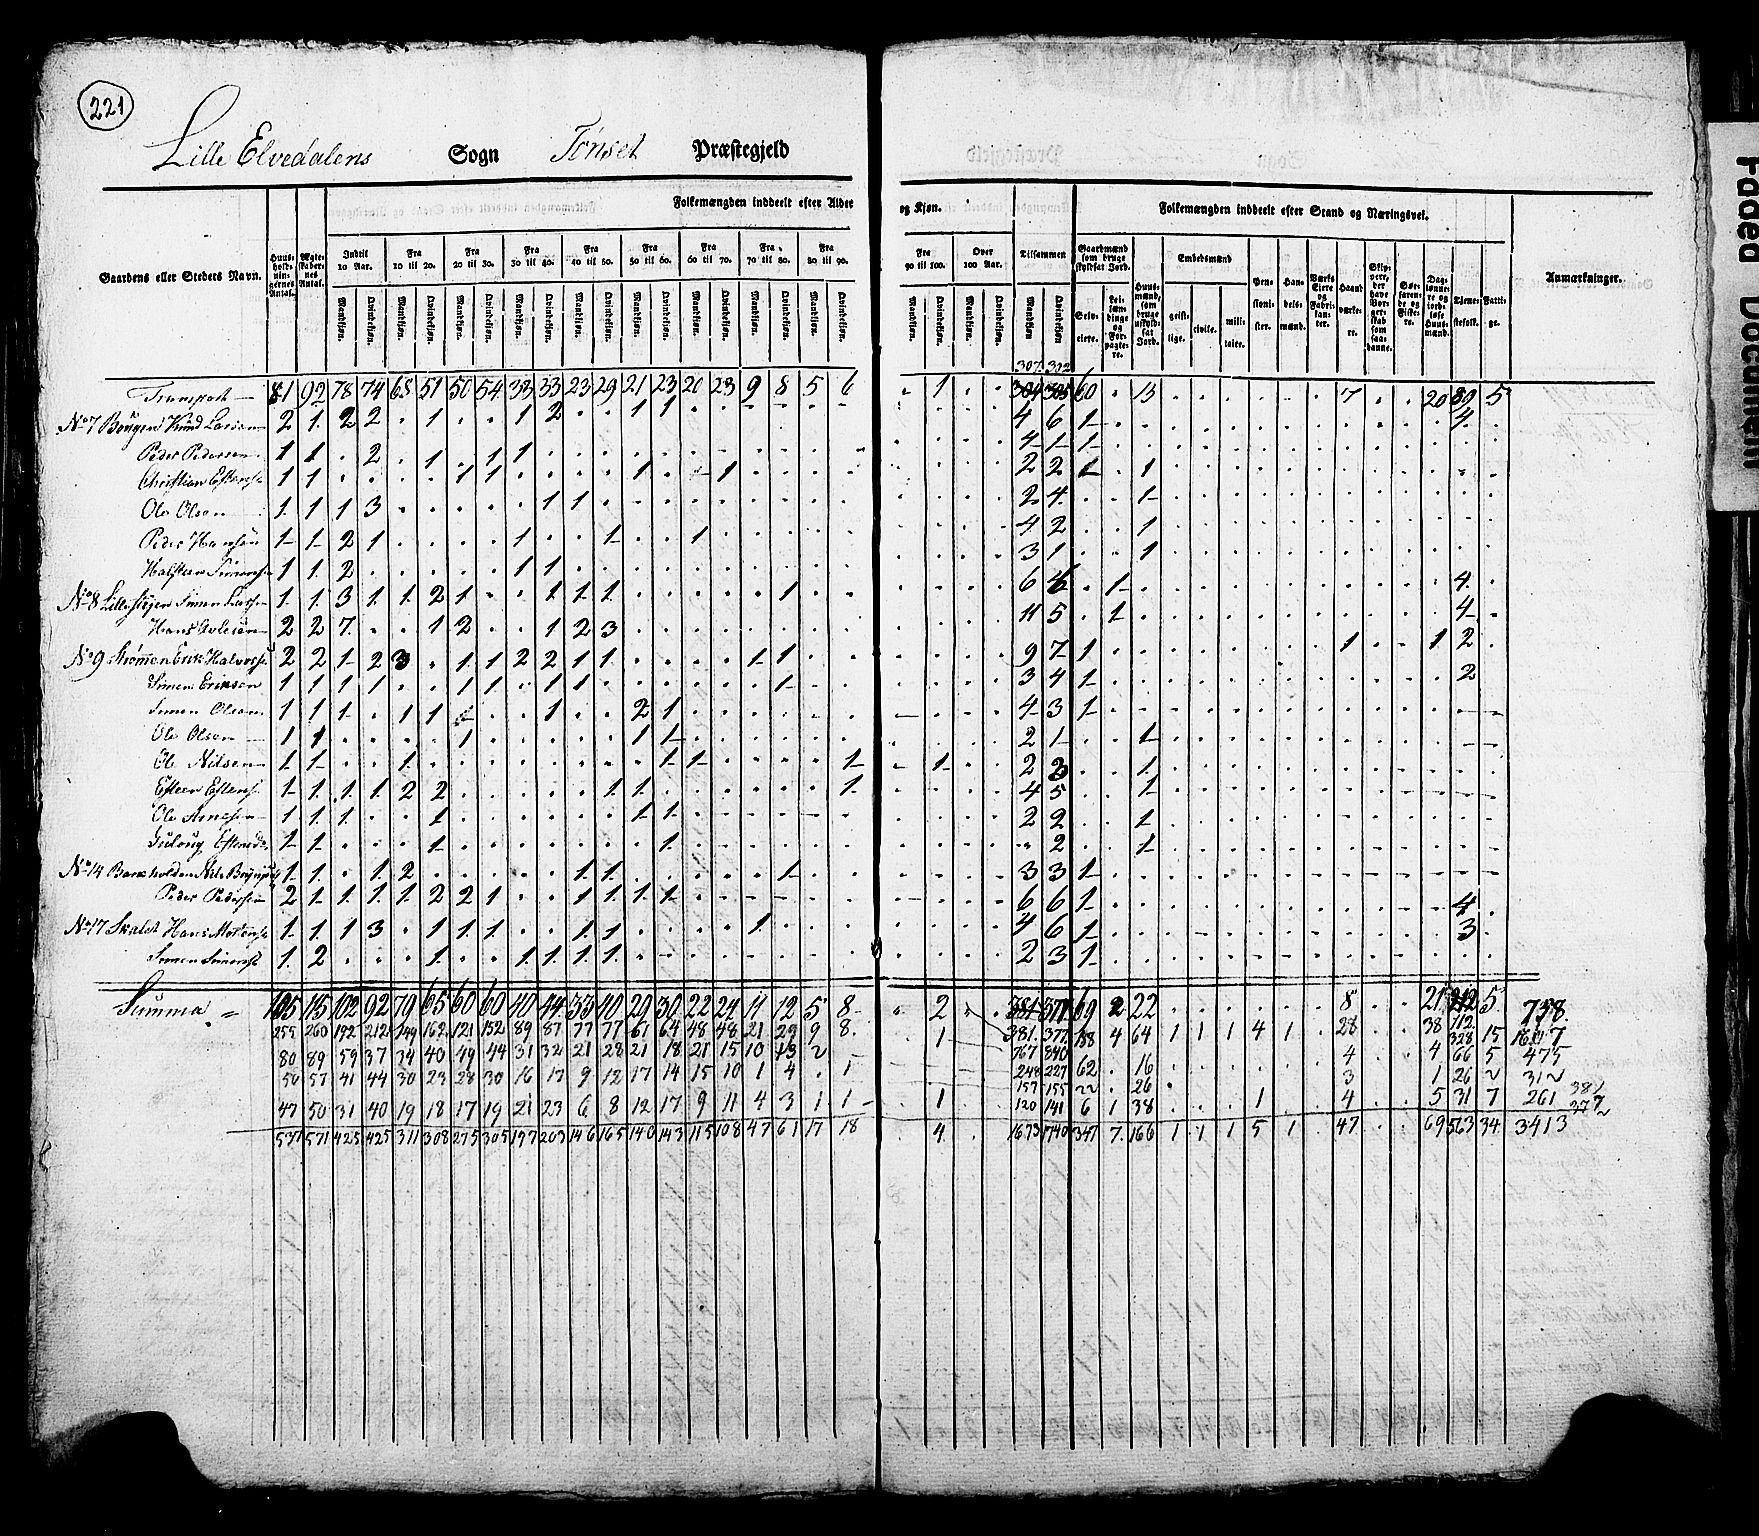 221
Lille Elvedalens Sogn Tønset Præstegjeld
Folkemængden inddeelt efter Alder og Kjøn. Folkemængden inddeelt efter Stand og Næringsvei.
Gaardens eller Steders Navn. Huusholdningernes Antal. Ægteskabernes Antal. Indtil 10 Aar. Fra 10 til 20. Fra 20 til 30. Fra 30 til 40. Fra 40 til 50. Fra 50 til 60. Fra 60 til 70. Fra 70 til 80. Fra 80 til 90. Fra 90 til 100. Over 100 Aar. Tilsammen Gaardmænd som bruge skyldsat Jord. Huusmænd, som bruge uskyldsat Jord. Embedsmænd Pensionister. Handelsmænd. Værks Eiere og Fabrikanter. Haandværkere. Skippere, der have Borgerskab som saadanne. Søefarende og Fiskere. Daglønnere og jordløse Huusmænd. Tjenestefolk. Fattige. Anmærkninger.
Mandkjøn. Qvindekjøn. Mandkjøn. Qvindekjøn. Mandkjøn. Qvindekjøn. Mandkjøn. Qvindekjøn. Mandkjøn. Qvindekjøn. Mandkjøn. Qvindekjøn. Mandkjøn. Qvindekjøn. Mandkjøn. Qvindekjøn. Mandkjøn. Qvindekjøn. Mandkjøn. Qvindekjøn. Mandkjøn. Qvindekjøn. Mandkjøn Qvindekjøn. Selveiere. Leilændinge og Forpagtere. geistlige. civile. militaire.
307 302
Transport 81 92 78 74 68 51 50 54 33 33 23 29 21 23 20 23 9 8 5 6 1 60 13 7 20 89 5
No 7 Knud Larsen 2 1 2 2 1 1 2 1 1 4 6 1 4
Peder Pedersen 1 1 2 1 1 1 4 1 1
Christian 1 1 1 1 1 1 2 2 1 1
Ole Olsen 1 1 1 3 1 1 2 4 1
Peder Hansen 1 1 2 1 1 1 1 4 2 1
1 1 2 1 1 3 1 1
No 8 Simen 1 1 3 1 1 2 1 1 1 1 1 6 1 4
Hans 2 2 7 1 2 1 2 3 11 5 1 4
No 9 Strømmen Erik 2 2 1 2 3 1 1 2 2 1 1 1 1 9 7 1 1 1 2
Simen Eriksen 1 1 1 1 1 1 1 1 1 3 4 1 2
Simen Olsen 1 1 1 1 1 1 2 1 4 3 1
Ole Olsen 1 1 1 1 1 2 1 1
Ole Nilsen 1 1 1 1 1 1 1 2 3 1
Esten 1 1 1 1 2 2 1 1 1 4 5 1
Ole Arnesen 1 1 1 1 1 1 2 2 1
1 1 1 1 2 1
No 14 Nils 1 1 1 2 1 1 1 3 3 1
Peder Pedersen 2 1 1 1 1 2 2 1 1 1 1 1 6 6 1 4
No 17 Hans 1 1 1 3 1 1 1 1 1 1 4 6 1 3
Simen 1 2 1 1 1 1 1 2 3 1
Summa 105 115 102 92 79 65 60 60 40 44 33 40 29 30 22 24 11 12 5 8 2 381 377 69 2 22 8 21 5 758
255 260 192 212 149 162 121 152 89 87 77 77 61 64 48 48 21 29 9 8 1 767 840 188 4 64 1 1 1 4 1 28 38 328 15 1607
80 89 59 37 34 40 49 44 31 32 21 28 21 18 21 15 10 13 2 248 227 62 16 4 4 66 5 475
50 57 41 44 30 23 28 30 16 17 9 12 17 14 15 10 1 4 1 157 155 22 26 3 1 26 2 312
47 50 31 40 19 18 17 19 21 23 6 8 12 17 9 11 4 3 1 1 1 120 141 6 1 38 1 4 5 31 7 261
381
377
537 571 425 425 311 308 275 305 197 203 146 165 140 143 115 108 47 61 17 18 4 1673 1740 347 7 166 1 1 1 5 1 47 69 563 34 3413
Faded Document